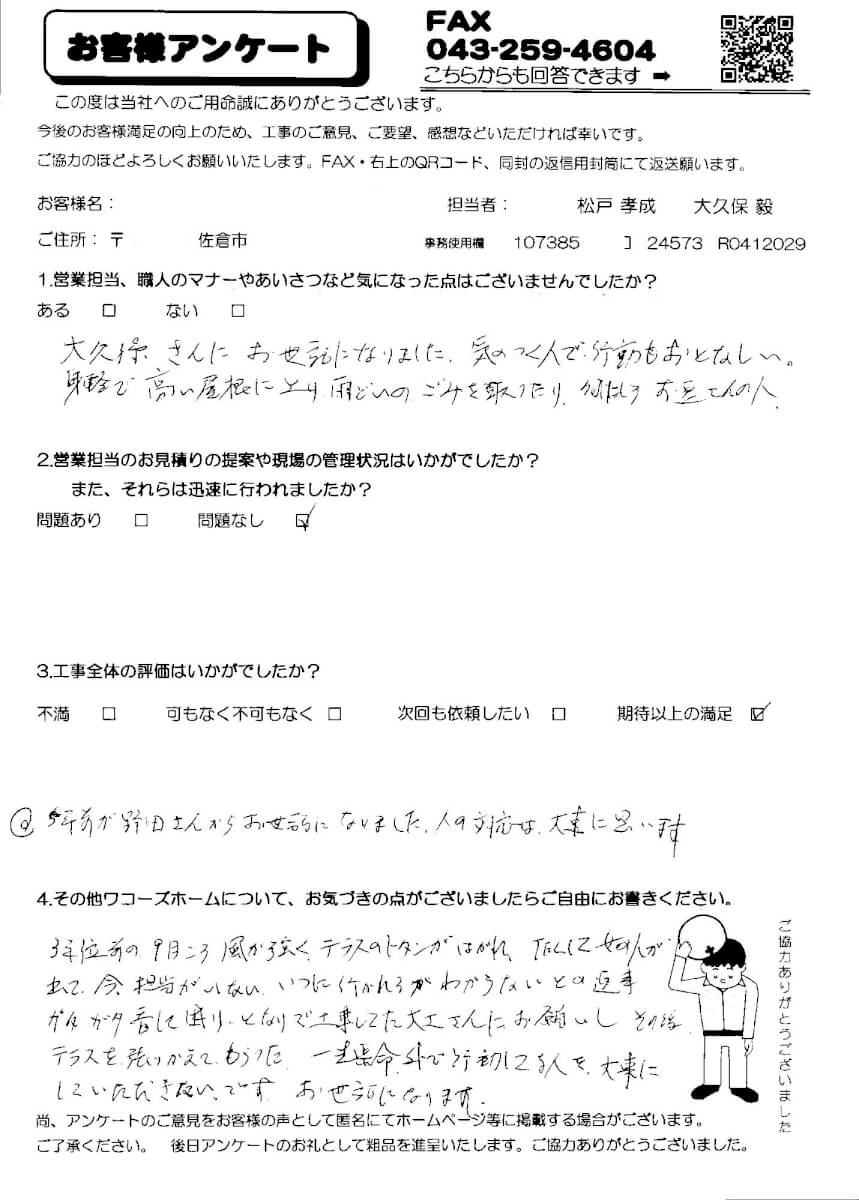 お客様アンケート
FAX
043-259-4604
こちらからも回答できます ➡
この度は当社へのご用命誠にありがとうございます。
今後のお客様満足の向上のため、工事のご意見、ご要望、感想などいただければ幸いです。
ご協力のほどよろしくお願いいたします。FAX・右上のQRコード、同封の返信用封筒にて返送願います。
お客様名： 担当者： 松戸 孝成 大久保 毅
ご住所：〒 佐倉市 事務使用欄 107385 24573 R0412029
1.営業担当、職人のマナーやあいさつなど気になった点はございませんでしたか？
ある □ ない □
大久保さんにお世話になりました、気のつく人で行動もおとなしい。
身軽で高い屋根に上り、雨どいのごみを取ったり、
2.営業担当のお見積りの提案や現場の管理状況はいかがでしたか？
また、それらは迅速に行われましたか？
問題あり □ 問題なし ☑
3.工事全体の評価はいかがでしたか？
不満 □ 可もなく不可もなく □ 次回も依頼したい □ 期待以上の満足 ☑
5年前が野田さんからお世話になりました、人の対応は、大事に思います
4.その他ワコーズホームについて、お気づきの点がございましたらご自由にお書きください。
3年位前の9月ころ風が強く、テラスのトタンがはがれ TELして女の人が
出て、今、担当がいない、いつに行かれるがわからないとの返事
ガタガタ音して困り、となりで工事してた大工さんにお願いし その後
テラスを張りかえてもらった 一生懸命、外で行動してる人を、大事に
していただきたいです お世話になります。
ご協力ありがとうございました
尚、アンケートのご意見をお客様の声として匿名にてホームページ等に掲載する場合がございます。
ご了承ください。 後日アンケートのお礼として粗品を進呈いたします。ご協力ありがとうございました。